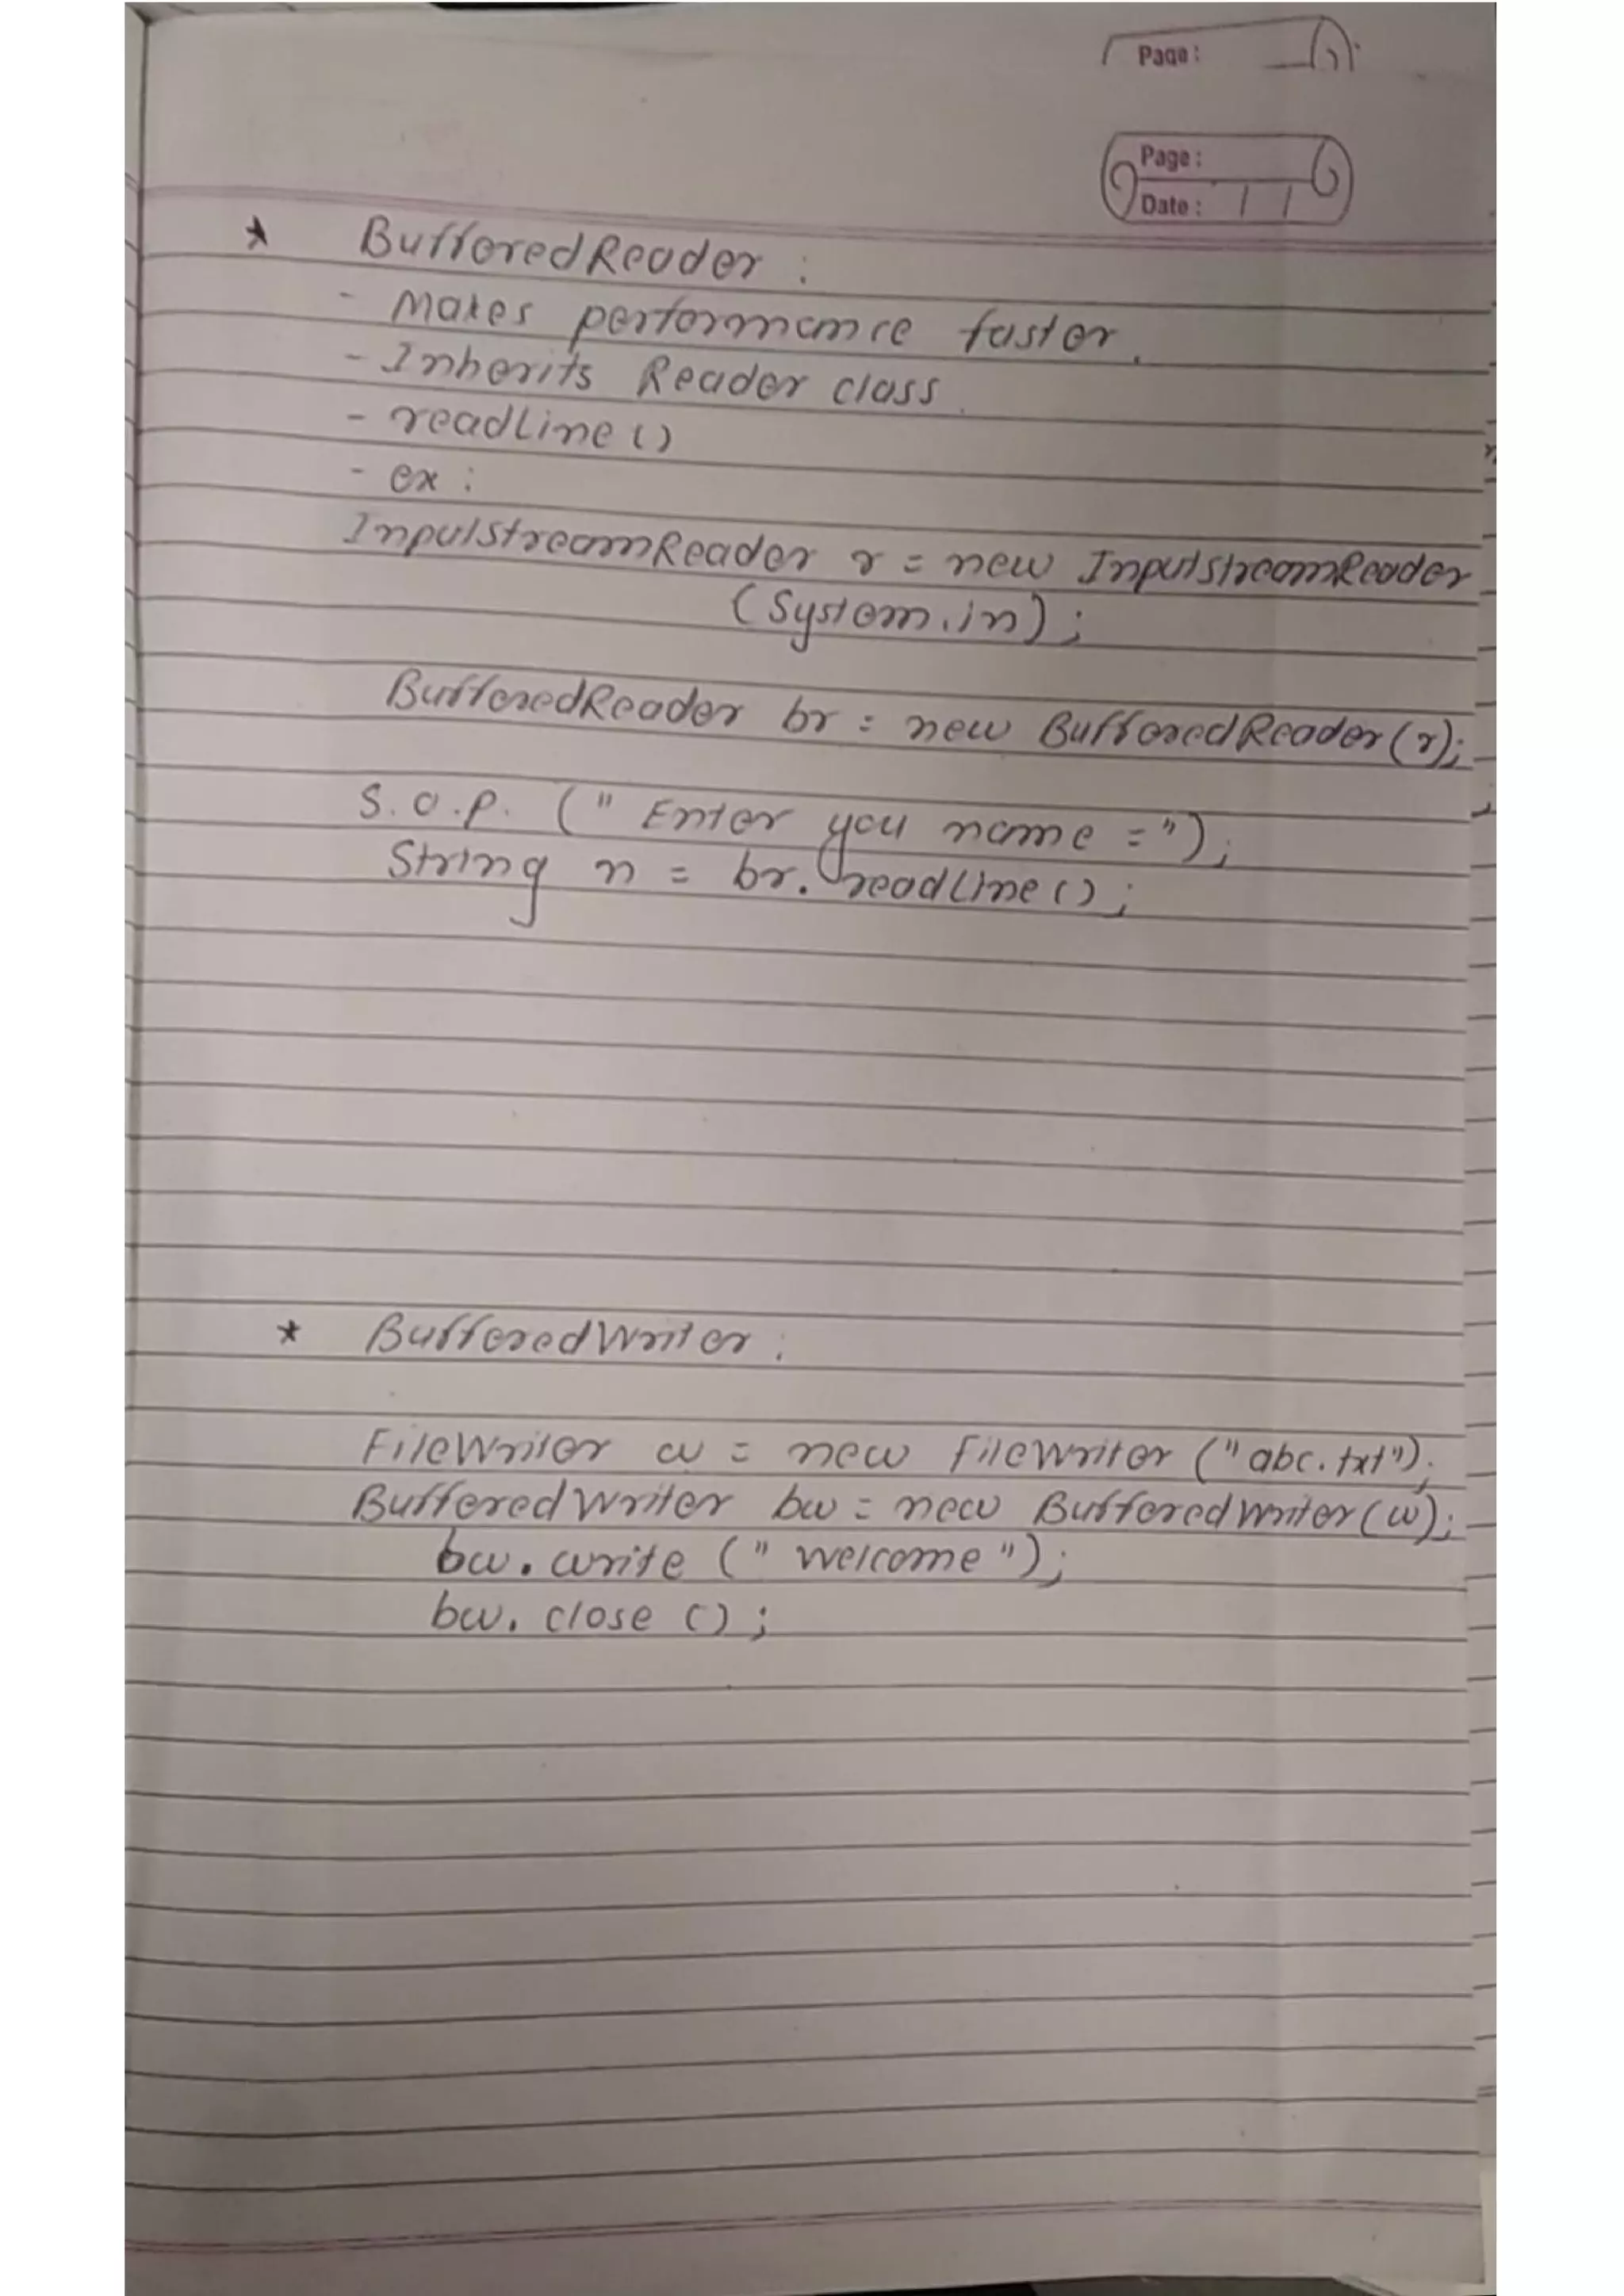 Page:
Page:
Date:
* BufferedReader :
- Makes performance faster.
- Inherits Reader class.
- readLine()
- ex :
InputStreamReader r = new InputStreamReader
(System.in);
BufferedReader br = new BufferedReader(r);
S.O.P. (" Enter you name =");
String n = br.readLine();
* BufferedWriter :
FileWriter w = new FileWriter ("abc.txt");
BufferedWriter bw = new BufferedWriter(w);
bw.write (" Welcome ");
bw.close();